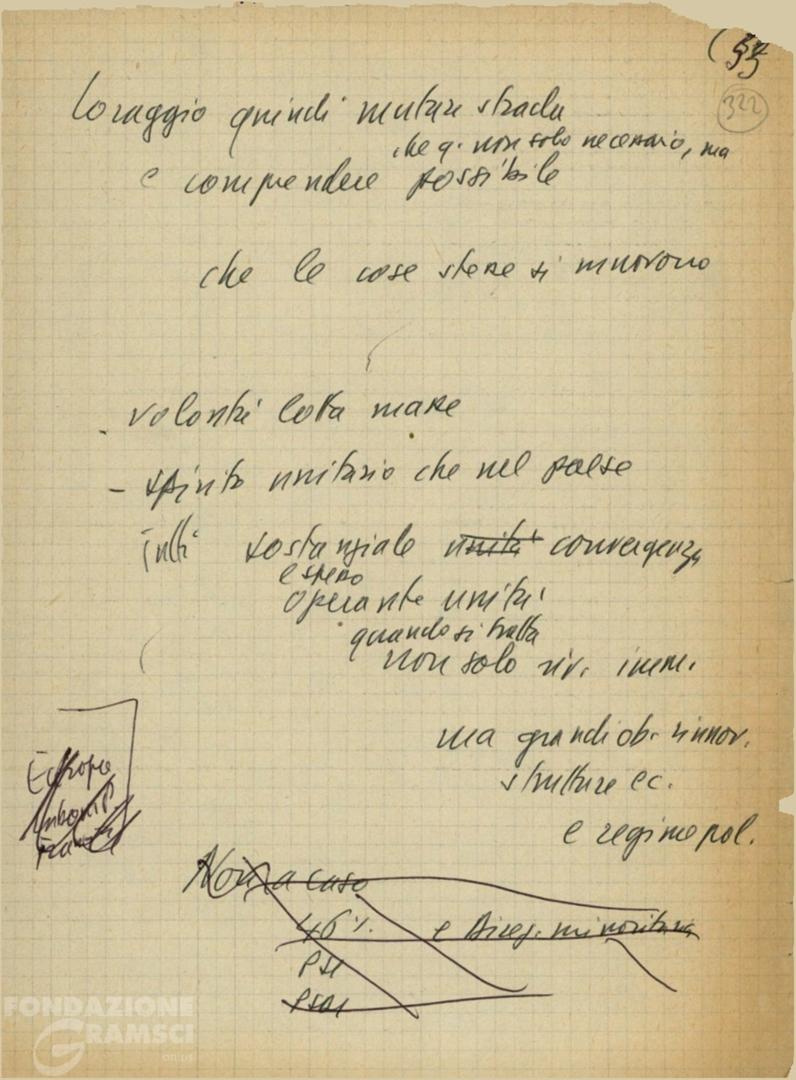 (55
322
Coraggio quindi mutare strada
che q. non solo necessario, ma
e comprendere possibile
che le cose stesse si muovono
- volontà lotta masse
- spinta unitaria che nel paese
tutti sostanziale unità convergenza
e spesso
operante unità
quando si tratta
non solo riv. imm.
ma grandi ob. rinnov.
strutture ec.
e regime pol.
Europa
Francia
Non a caso
46% e Direz. minoritaria
PSI
PSDI
FONDAZIONE
GRAMSCI
ONLUS